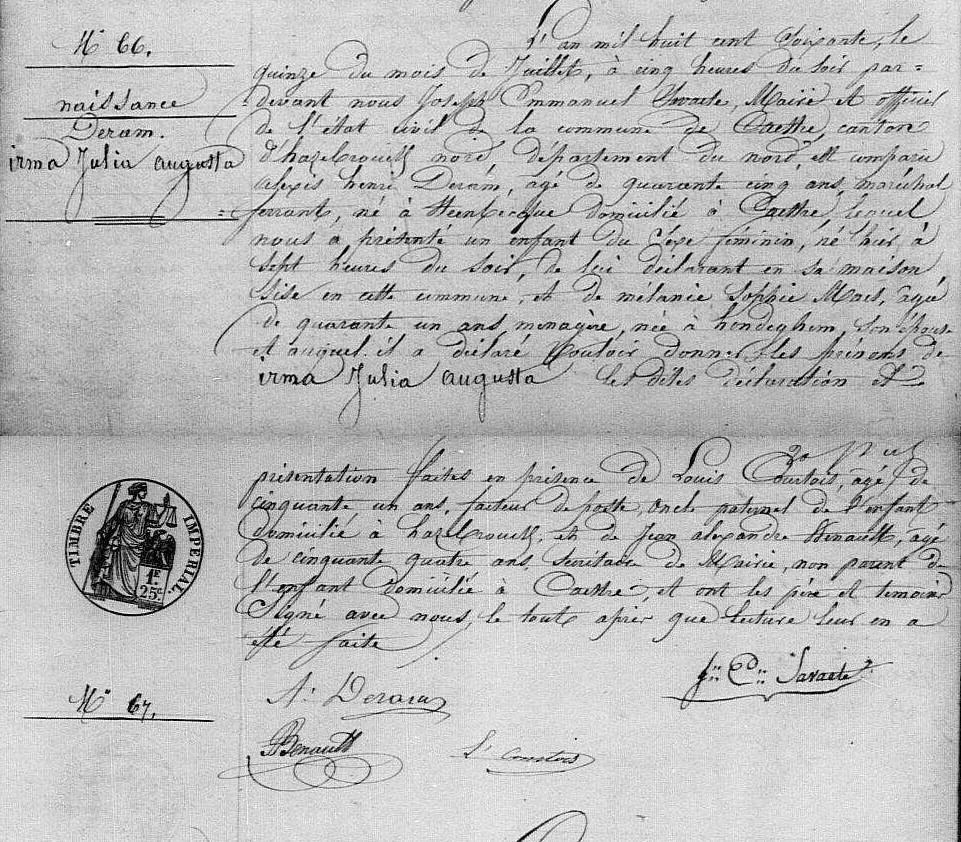 N° 66.
naissance
Deram.
irma Julia augusta
L'an mil huit cent soixante, le
quinze du mois de Juillet, à cinq heures du soir par=
devant nous Joseph Emmanuel Savaete, Maire et officier
de l'état civil de la commune de Caestre, canton
d'hazebrouck nord, département du nord, est comparu
alexis henri Deram, agé de quarante cinq ans, maréchal
ferrant, né à Steenbecque domicilié à Caestre, lequel
nous a présenté un enfant du sexe féminin, né hier à
sept heures du soir, de lui déclarant en sa maison
sise en cette commune, et de mélanie Sophie Maes, agée
de quarante un ans, menagère, née à hondeghem, son épouse
et auquel il a déclaré vouloir donner les prénoms de
irma Julia augusta les dites déclaration et
présentation faites en présence de Louis Courtois, agé de
cinquante un ans, facteur de poste, oncle paternel de l'enfant
domicilié à hazebrouck, et de Jean alexandre Benault, agé
de cinquante quatre ans, secrétaire de Mairie, non parent de
l'enfant domicilié à Caestre, et ont les père et temoins
signé avec nous, le tout après que lecture leur en a
été faite
TIMBRE IMPERIAL
1F
25c
N° 67.
A. Deram
Savaete
Benault
L. Courtois